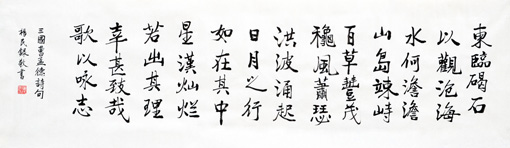 東臨碣石
以觀滄海
水何澹澹
山島竦峙
百草豐茂
穐風蕭瑟
洪波涌起
日月之行
如在其中
星漢灿烂
若出其理
幸甚致哉
歌以咏志
三國曹孟德詩句
敬書